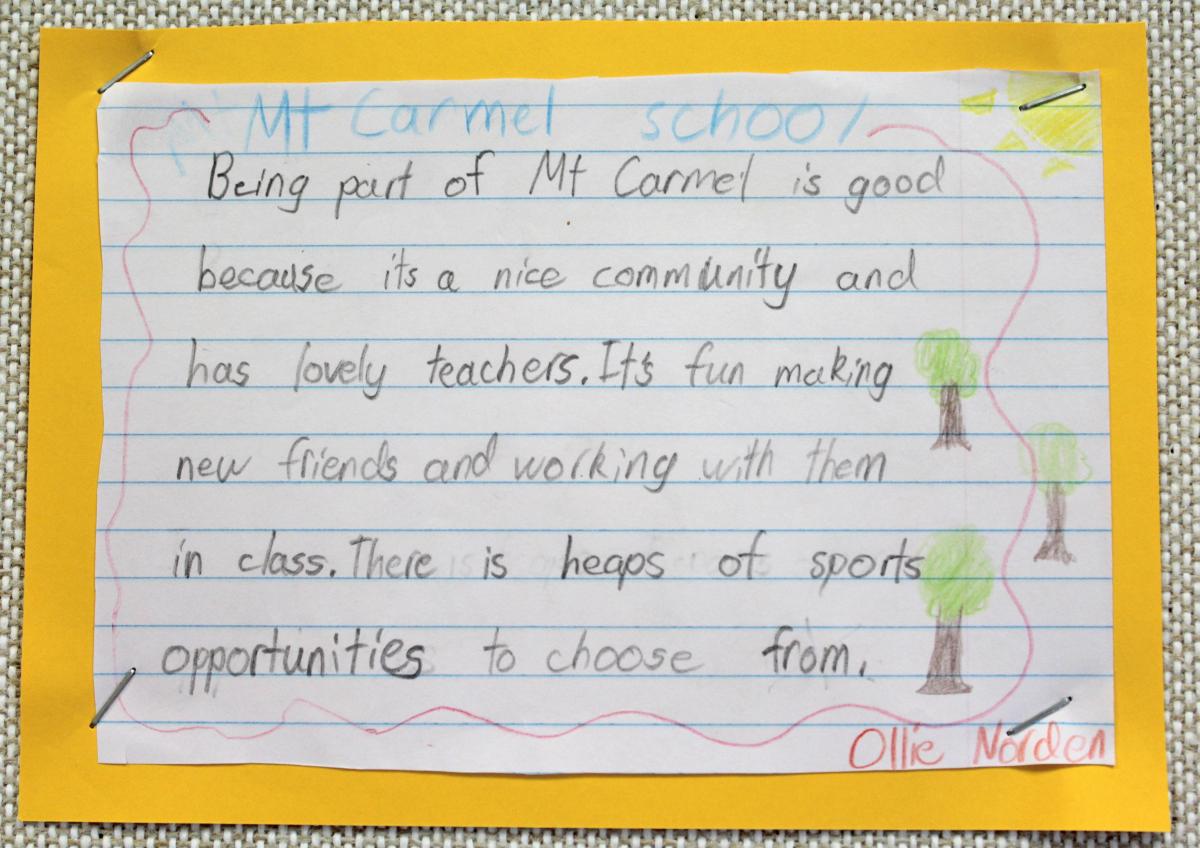 Mt Carmel school
Being part of Mt Carmel is good
because its a nice community and
has lovely teachers. It's fun making
new friends and working with them
in class. There is heaps of sports
opportunities to choose from.
Ollie Norden